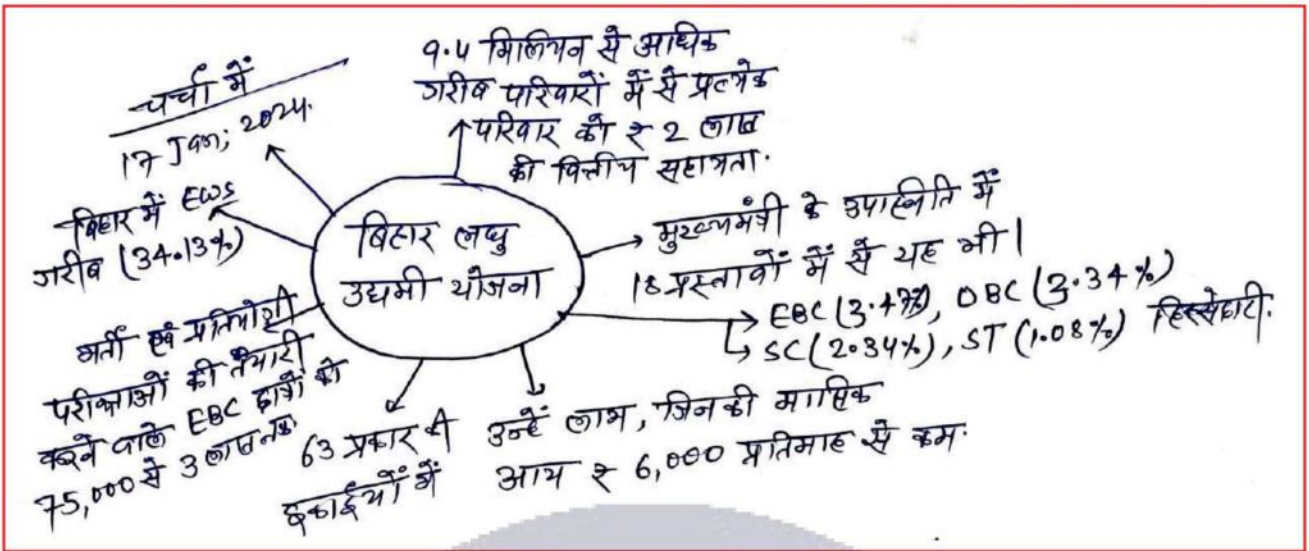 चर्चा में
17 Jan; 2024.
9.4 मिलियन से अधिक
गरीब परिवारों में से प्रत्येक
परिवार को ₹ 2 लाख
की वित्तीय सहायता.
बिहार में EWS
गरीब (34.13%)
बिहार लघु
उद्यमी योजना
मुख्यमंत्री के उपस्थिति में
18 प्रस्तावों में से यह भी।
EBC (3.47%), OBC (3.34%)
SC (2.34%), ST (1.08%) हिस्सेदारी.
भर्ती एवं प्रतियोगी
परीक्षाओं की तैयारी
करने वाले EBC छात्रों को
75,000 से 3 लाख तक
63 प्रकार की
इकाईयों में
उन्हें लाभ, जिनकी मासिक
आय ₹ 6,000 प्रतिमाह से कम.